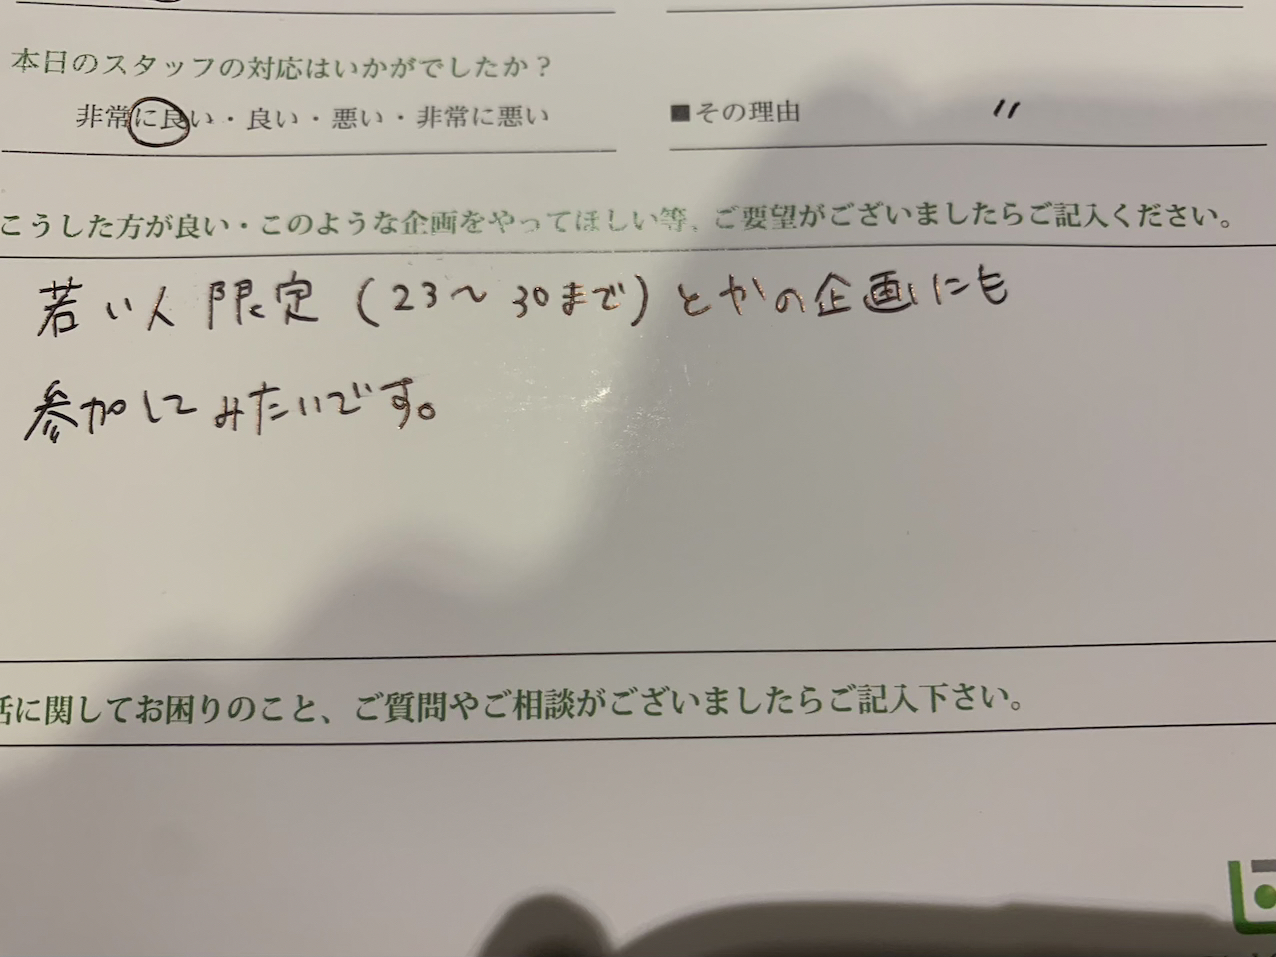 本日のスタッフの対応はいかがでしたか？
非常に良い・良い・悪い・非常に悪い
■その理由 〃
こうした方が良い・このような企画をやってほしい等、ご要望がございましたらご記入ください。
若い人限定（23〜30まで）とかの企画にも
参加してみたいです。
に関してお困りのこと、ご質問やご相談がございましたらご記入下さい。